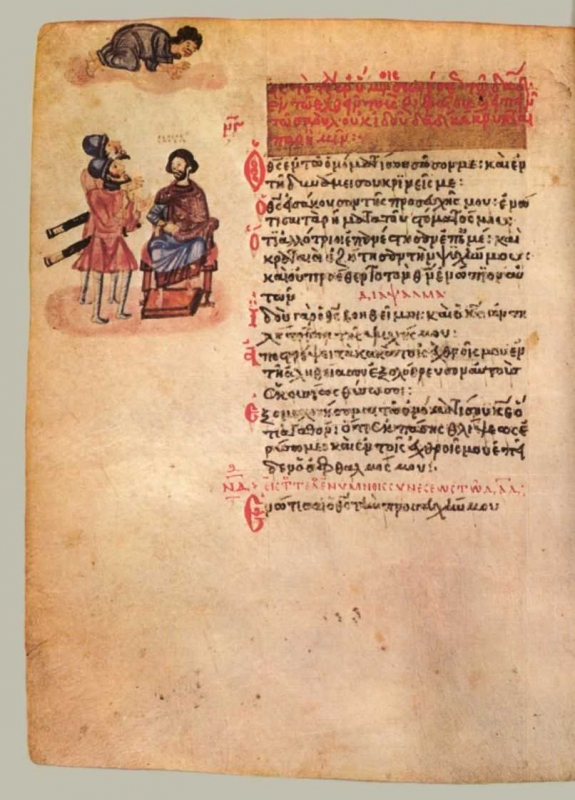 ὁ θς ἐν τῶ ὀνόματί σου σῶσόν με: καὶ ἐν
τῆ δυνάμει σου κρινεῖς με:
ὁ θς εἰσάκουσον τῆς προσευχῆς μου: ἐνώ
τισαι τὰ ῥήματα τοῦ στόματός μου:
ὅτι ἀλλότριοι ἐπανέστησαν ἐπ ἐμέ: καὶ
κραταιοὶ ἐζήτησαν τὴν ψυχήν μου:
καὶ οὐ προέθεντο τὸν θν ἐνώπιον αὐ
τῶν ΔΙΑΨΑΛΜΑ
ἰδοὺ γὰρ ὁ θς βοηθεῖ μοι: καὶ ὁ κς ἀντι
λήπτωρ τῆς ψυχῆς μου:
ἀποστρέψει τὰ κακὰ τοῖς ἐχθροῖς μου ἐν
τῆ ἀληθεία σου ἐξολόθρευσον αὐτούς
ἑκουσίως θύσω σοι:
ἐξομολογήσομαι τῶ ὀνόματί σου κε ὅ
τι ἀγαθόν: ὅτι ἐκ πάσης θλίψεως ἐ
ρύσω με: καὶ ἐν τοῖς ἐχθροῖς μου ἐπεῖ
δεν ὁ ὀφθαλμός μου:
ΝΔ ΕΙΣ Τ ΤΕΛ ΕΝ ΥΜΝΟΙΣ ΣΥΝΕΣΕΩΣ ΤΩ ΔΑΔ
ἐνώτισαι ὁ θς τὴν προσευχήν μου